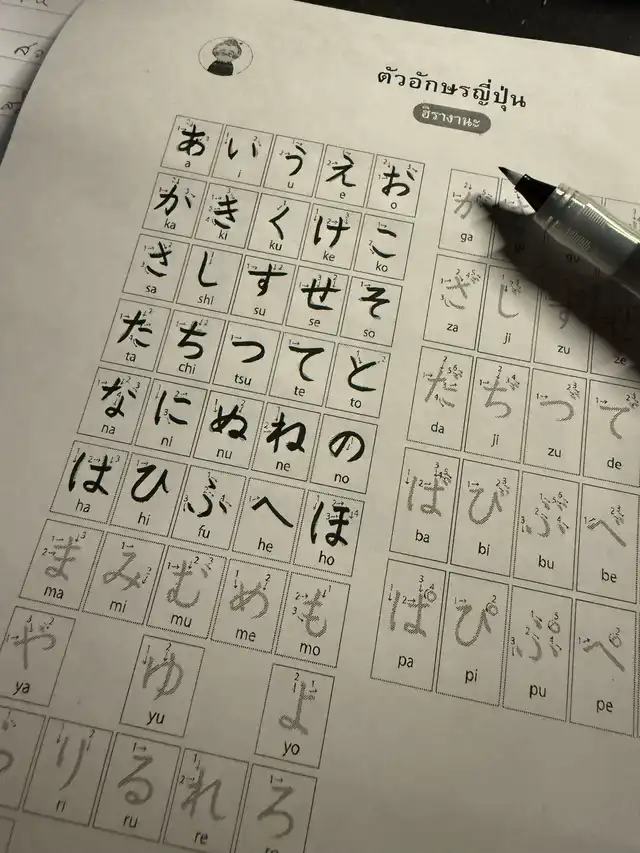 ตัวอักษรญี่ปุ่น
ฮิรางานะ
あ い う え お
a i u e o
か き く け こ
ka ki ku ke ko
さ し す せ そ
sa shi su se so
た ち つ て と
ta chi tsu te to
な に ぬ ね の
na ni nu ne no
は ひ ふ へ ほ
ha hi fu he ho
ま み む め も
ma mi mu me mo
や ゆ よ
ya yu yo
り る れ ろ
ri ru re
が
ga
ざ じ ず
za ji zu
だ ぢ づ で
da ji zu de
ば び ぶ べ
ba bi bu be
ぱ ぴ ぷ ぺ
pa pi pu pe